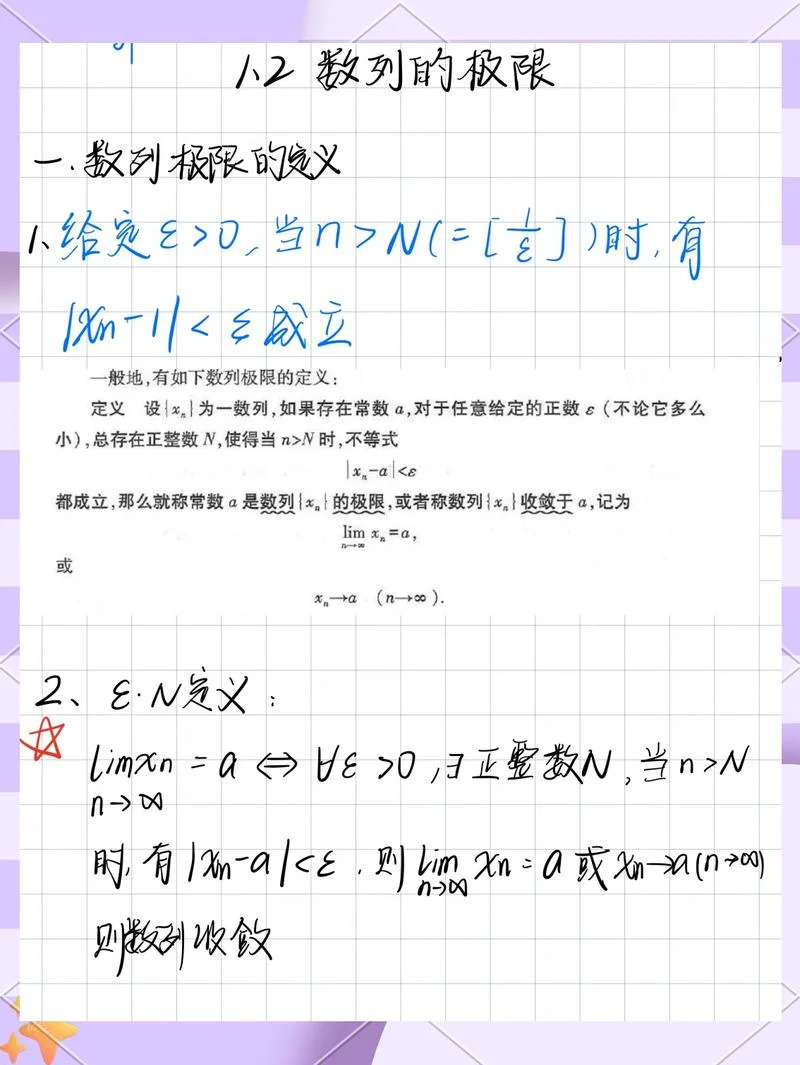 1.2 数列的极限
一.数列极限的定义
1、给定ε>0,当n>N(=[1/ε])时,有
|xn-1|<ε成立
一般地,有如下数列极限的定义:
定义 设{xₙ}为一数列,如果存在常数 a,对于任意给定的正数 ε (不论它多么
小),总存在正整数 N,使得当 n>N 时,不等式
|xₙ-a|<ε
都成立,那么就称常数 a 是数列{xₙ}的极限,或者称数列{xₙ}收敛于 a,记为
lim xₙ=a,
n→∞
或
xₙ→a (n→∞).
2、ε·N定义:
lim xn = a ⇔ ∀ε>0,∃正整数N,当n>N
n→∞
时,有|xn-a|<ε.则 lim xn=a 或 xn→a(n→∞)
n→∞
则数列收敛